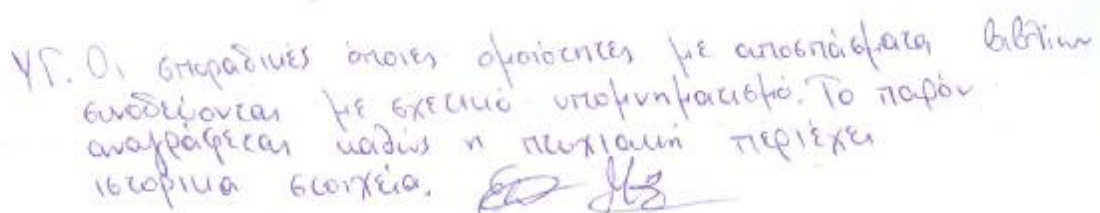 ΥΓ. Οι σποραδικές όποιες ομοιότητες με αποσπάσματα βιβλίων
συνοδεύονται με σχετικό υπομνηματισμό. Το παρόν
αναγράφεται καθώς η πτυχιακή περιέχει
ιστορικά στοιχεία.